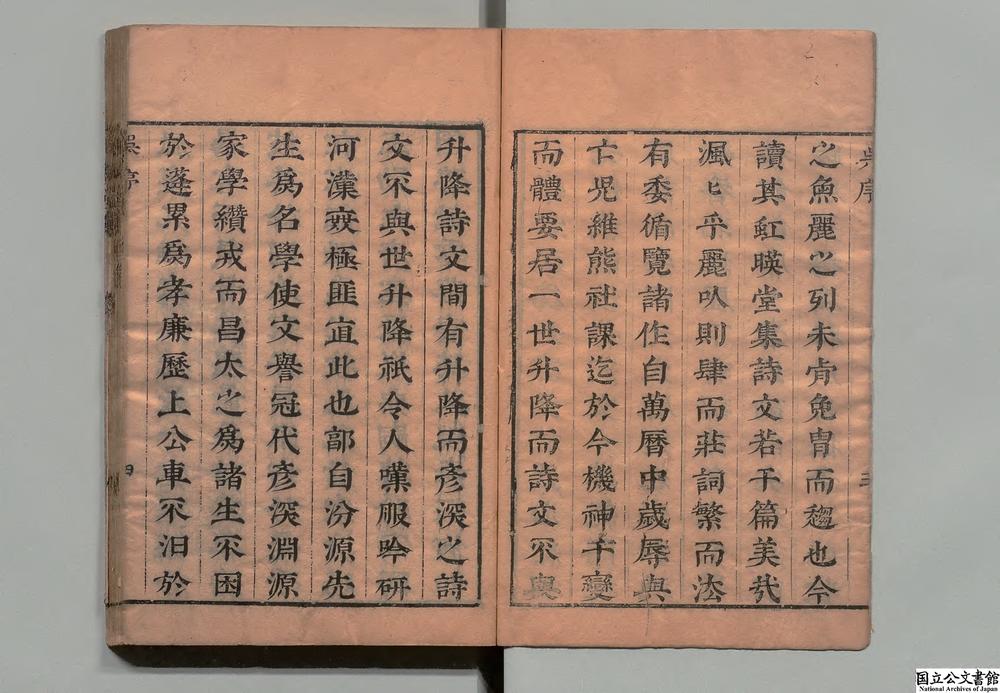 吳序
之魚麗之列未肯免冑而趨也今
讀其虹暎堂集詩文若干篇美哉
渢匕乎麗㕥則肆而莊詞繁而法
有委循覽諸作自萬曆中歲辱與
亡兒維熊社課迄於今機神千變
而體要居一世升降而詩文不與
升降詩文間有升降而彥深之詩
文不與世升降祇令人嘆服吟研
河漢極匪直此也郭自汾源先
生爲名學使文譽冠代彥深淵源
家學纘戎而昌大之爲諸生不困
於蓬累爲孝廉歷上公車不汨於
吳序
四
国立公文書館
National Archives of Japan